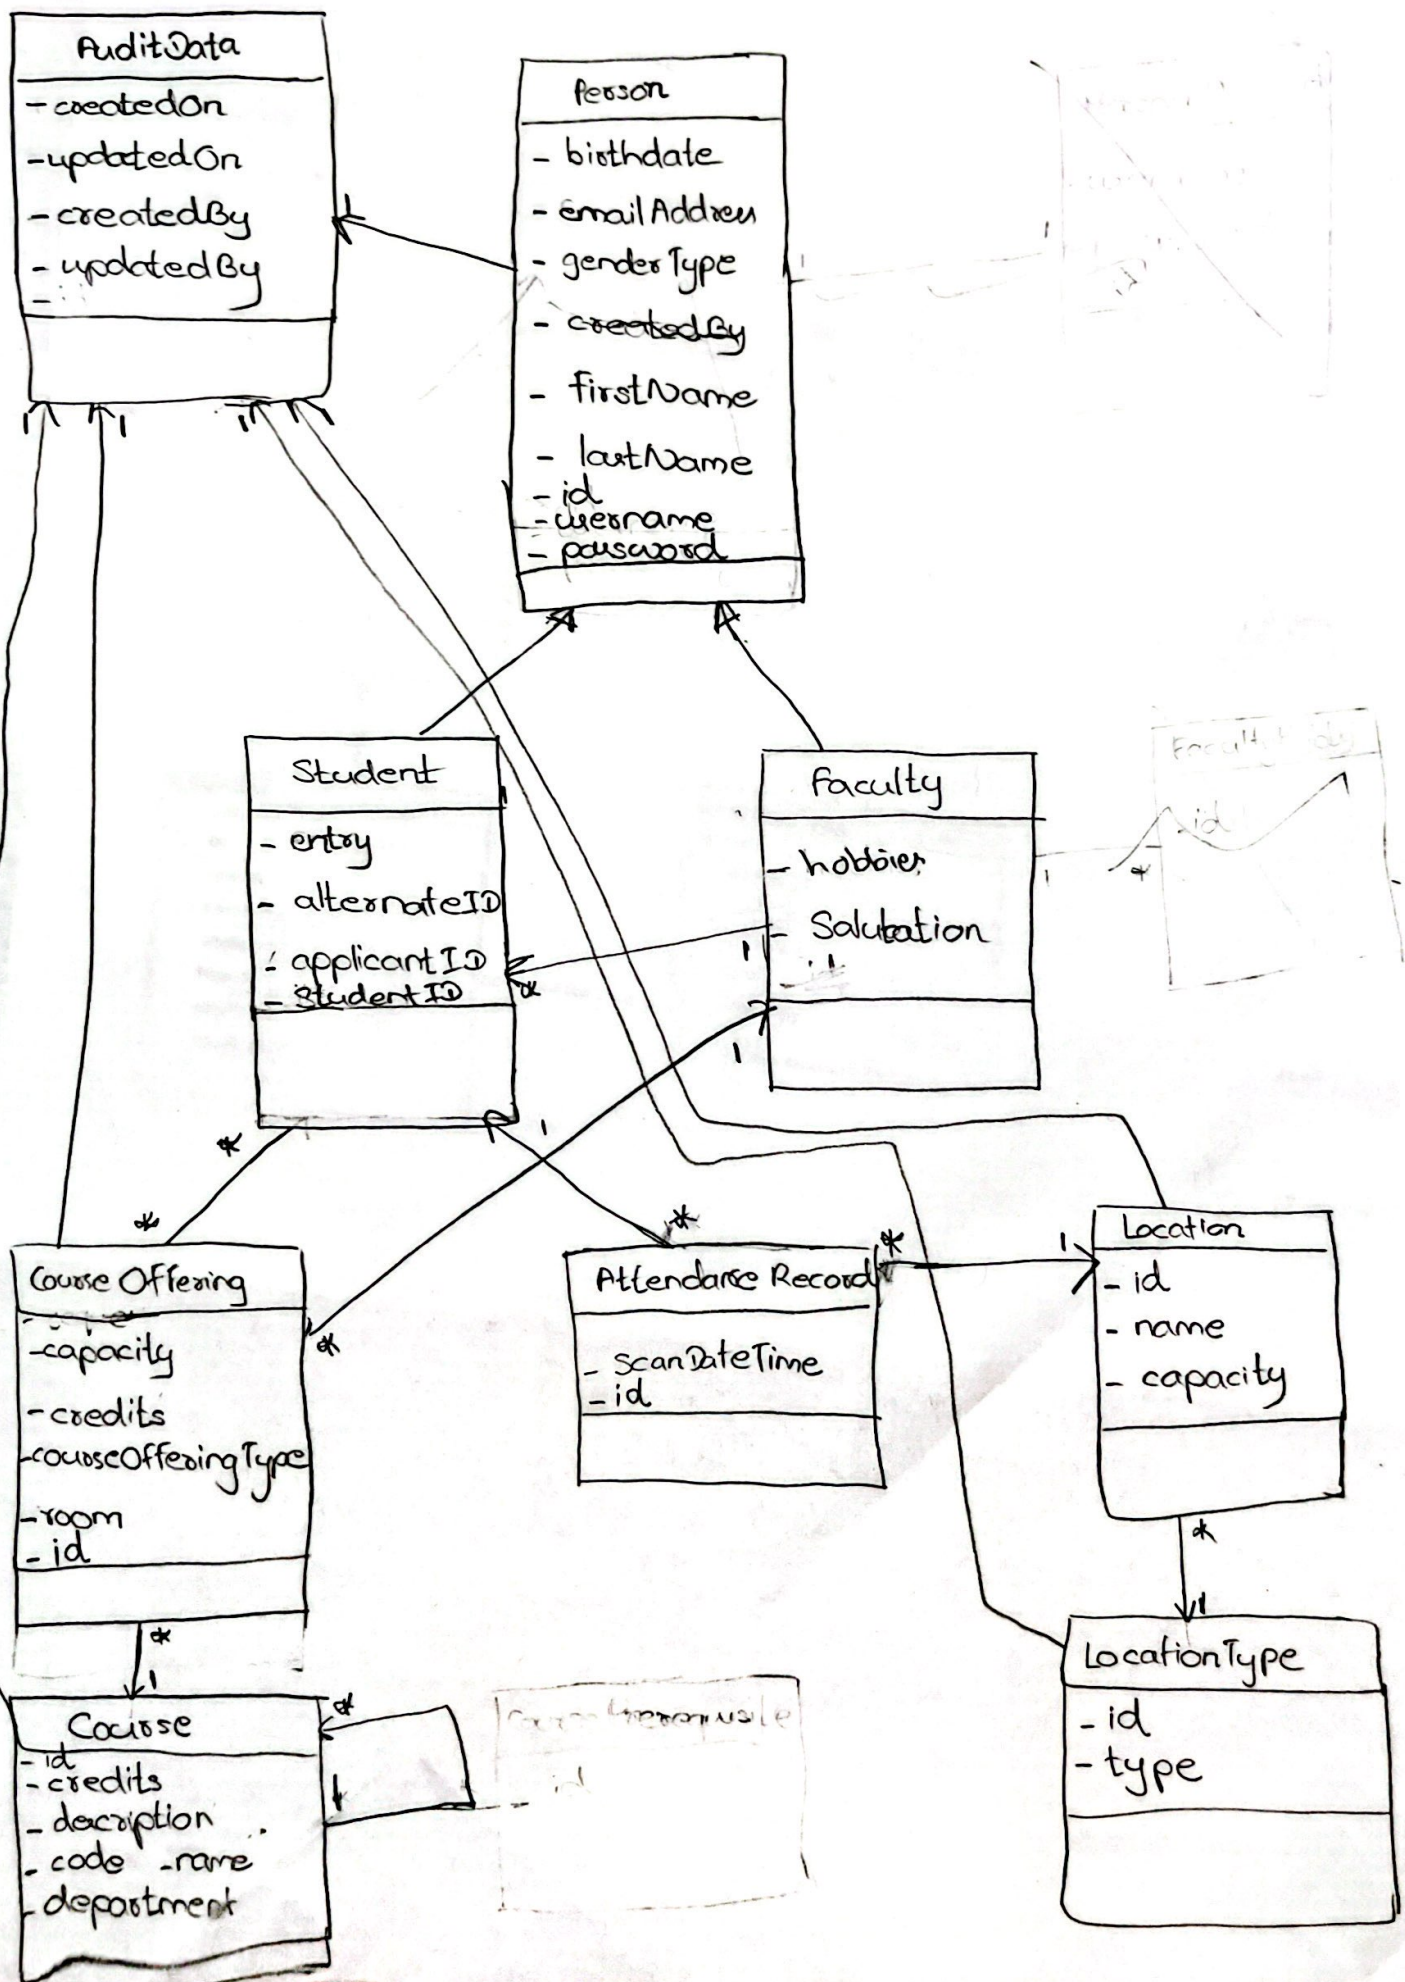 AuditData
- createdOn
- updatedOn
- createdBy
- updatedBy
-
1
Person
- birthdate
- emailAddress
- genderType
- createdBy
- firstName
- lastName
- id
- username
- password
1
1
1 1 1 1
Student
- entry
- alternateID
- applicantID
- StudentID
Faculty
- hobbies
- Salutation
1
*
1
Faculty
- id
1 *
*
*
1
*
Course Offering
- capacity
- credits
- courseOfferingType
- room
- id
*
Attendance Record
- scanDateTime
- id
* 1
Location
- id
- name
- capacity
*
1
LocationType
- id
- type
*
1
Course
- id
- credits
- description
- code - name
- department
*
1
id